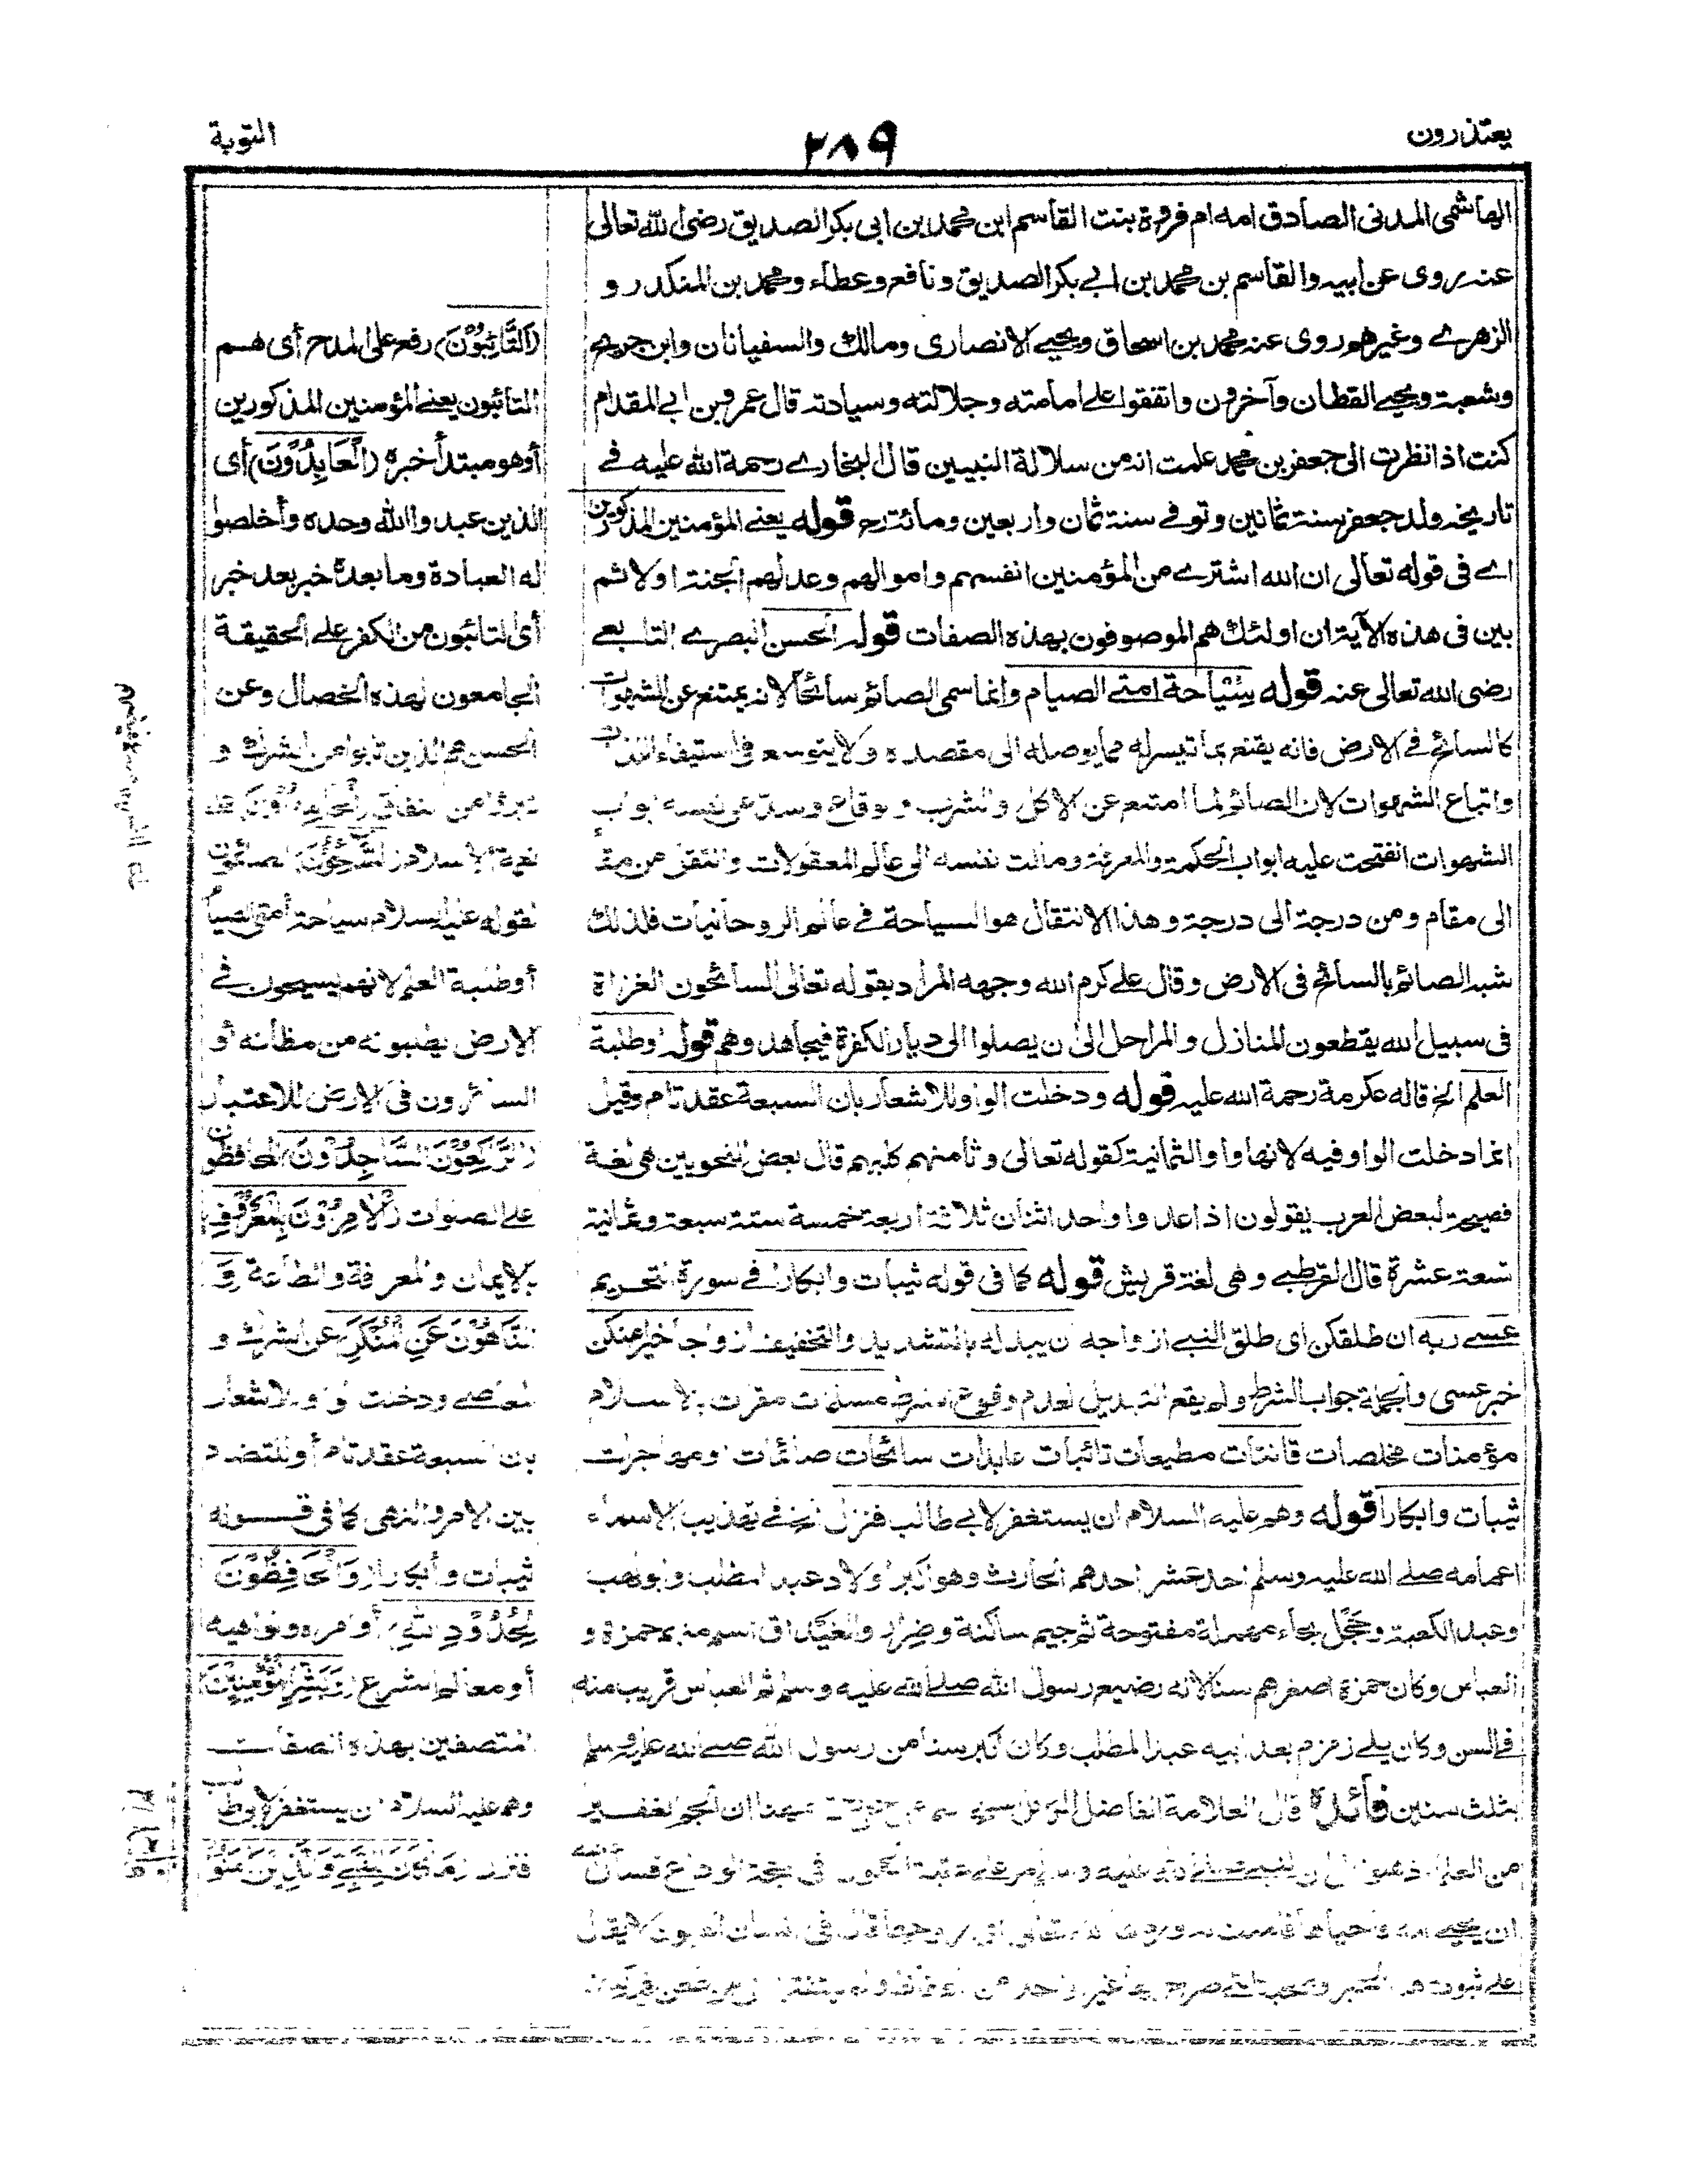 يعتذرون
٢٨٩
التوبة
الهاشمى المدنى الصادق امه ام فروة بنت القاسم ابن محمد بن ابى بكر الصديق رضى الله تعالى
عنه روى عن ابيه والقاسم بن محمد بن ابى بكر الصديق ونافع وعطاء ومحمد بن المنكدر و
الزهرى وغيرهم روى عنه محمد بن اسحاق ويحيى الانصارى ومالك والسفيانان وابن جريج
وشعبة ويحيى القطان وآخرون واتفقوا على امامته وجلالته وسيادته قال عمرو بن ابى المقدام
كنت اذا نظرت الى جعفر بن محمد علمت انه من سلالة النبيين قال البخارى رحمة الله عليه فى
تاريخه ولد جعفر سنة ثمانين وتوفى سنة ثمان واربعين ومائة رح قوله يعنى المؤمنين المذكورين
اى فى قوله تعالى ان الله اشترى من المؤمنين انفسهم واموالهم وعد لهم الجنة اولا ثم
بين فى هذه الآية ان اولئك هم الموصوفون بهذه الصفات قوله الحسن البصرى التابعى
رضى الله تعالى عنه قوله سياحة امتى الصيام وانما سمى الصائم سائحا لانه يمتنع عن الشهوات
كالسائح فى الارض فانه يقنع بما تيسر له مما يوصله الى مقصده ولا يتوسع فى استيفاء اللذات
واتباع الشهوات لان الصائم لما امتنع عن الاكل والشرب والوقاع وسد على نفسه ابواب
الشهوات انفتحت عليه ابواب الحكمة والمعرفة ومالت نفسه الى عالم المعقولات وانتقل من مقام
الى مقام ومن درجة الى درجة وهذا الانتقال هو السياحة فى عالم الروحانيات فلذلك
شبه الصائم بالسائح فى الارض وقال على كرم الله وجهه المراد بقوله تعالى السائحون الغزاة
فى سبيل الله يقطعون المنازل والمراحل الى ان يصلوا الى ديار الكفرة فيجاهدوهم قوله اوطلبة
العلم الخ قاله عكرمة رحمة الله عليه قوله ودخلت الواو للاشعار بان السبعة عقد تام وقيل
انما دخلت الواو فيه لانها واو الثمانية كقوله تعالى وثامنهم كلبهم قال بعض النحويين هى لغة
فصيحة لبعض العرب يقولون اذا عدوا واحد اثنان ثلاثة اربعة خمسة ستة سبعة وثمانية
تسعة عشرة قال القرطبى وهى لغة قريش قوله كما فى قوله ثيبات وابكارا فى سورة التحريم
عسى ربه ان طلقكن اى طلق النبى ازواجه ان يبدله بالتشديد والتخفيف ازواجا خيرا منكن
خبر عسى والجملة جواب الشرط ولم يقع التبديل لعدم وقوع الشرط مسلمات مقرات بالاسلام
مؤمنات مخلصات قانتات مطيعات تائبات عابدات سائحات صائمات او مهاجرات
ثيبات وابكارا قوله وهم عليه السلام ان يستغفر لابى طالب فنزل الخ فى تهذيب الاسماء
اعمامه صلى الله عليه وسلم احد عشر احدهم الحارث وهو اكبر اولاد عبد المطلب وابو لهب
وعبد الكعبة وحجل بحاء مهملة مفتوحة ثم جيم ساكنة وضرار والغيداق اسم منهم حمزة و
العباس وكان حمزة اصغرهم سنا لانه رضيع رسول الله صلى الله عليه وسلم ثم العباس قريب منه
فى السن وكان يلى زمزم بعد ابيه عبد المطلب وكان اكبر سنا من رسول الله صلى الله عليه وسلم
بثلث سنين فائدة قال العلامة الفاضل ان الجم الغفير
من العلماء عليه فى حجة الوداع
ان يحيى
(التَّائِبُوْنَ) رفع على المدح أى هم
التائبون يعنى المؤمنين المذكورين
أو هو مبتدأ خبره (الْعَابِدُوْنَ) أى
الذين عبدوا الله وحده وأخلصوا
له العبادة وما بعده خبر بعد خبر
أى التائبون من الكفر على الحقيقة
الجامعون لهذه الخصال وعن
الحسن هم الذين تابوا من الشرك و
تبرؤا من النفاق (الْحَامِدُوْنَ) على
نعمة الاسلام (السَّائِحُوْنَ) الصائمون
لقوله عليه السلام سياحة أمتى الصيام
أو طلبة العلم لانهم يسيحون فى
الارض يطلبونه من مظانه أو
السائرون فى الارض للاعتبار
(الرَّاكِعُوْنَ السَّاجِدُوْنَ) المحافظون
على الصلوات (الْآمِرُوْنَ بِالْمَعْرُوْفِ)
بالايمان والمعرفة والطاعة (وَ
النَّاهُوْنَ عَنِ الْمُنْكَرِ) عن الشرك و
المعاصى ودخلت الواو للاشعار
بان السبعة عقد تام أو للتضاد
بين الامر والنهى كما فى قوله
ثيبات وأبكارا (وَالْحَافِظُوْنَ
لِحُدُوْدِ اللّٰهِ) أوامره ونواهيه
أو معالم الشرع (وَبَشِّرِ الْمُؤْمِنِيْنَ)
المتصفين بهذه الصفات
وهم عليه السلام ان يستغفر لابى طالب
فنزل (مَا كَانَ لِلنَّبِىِّ وَالَّذِيْنَ اٰمَنُوْا